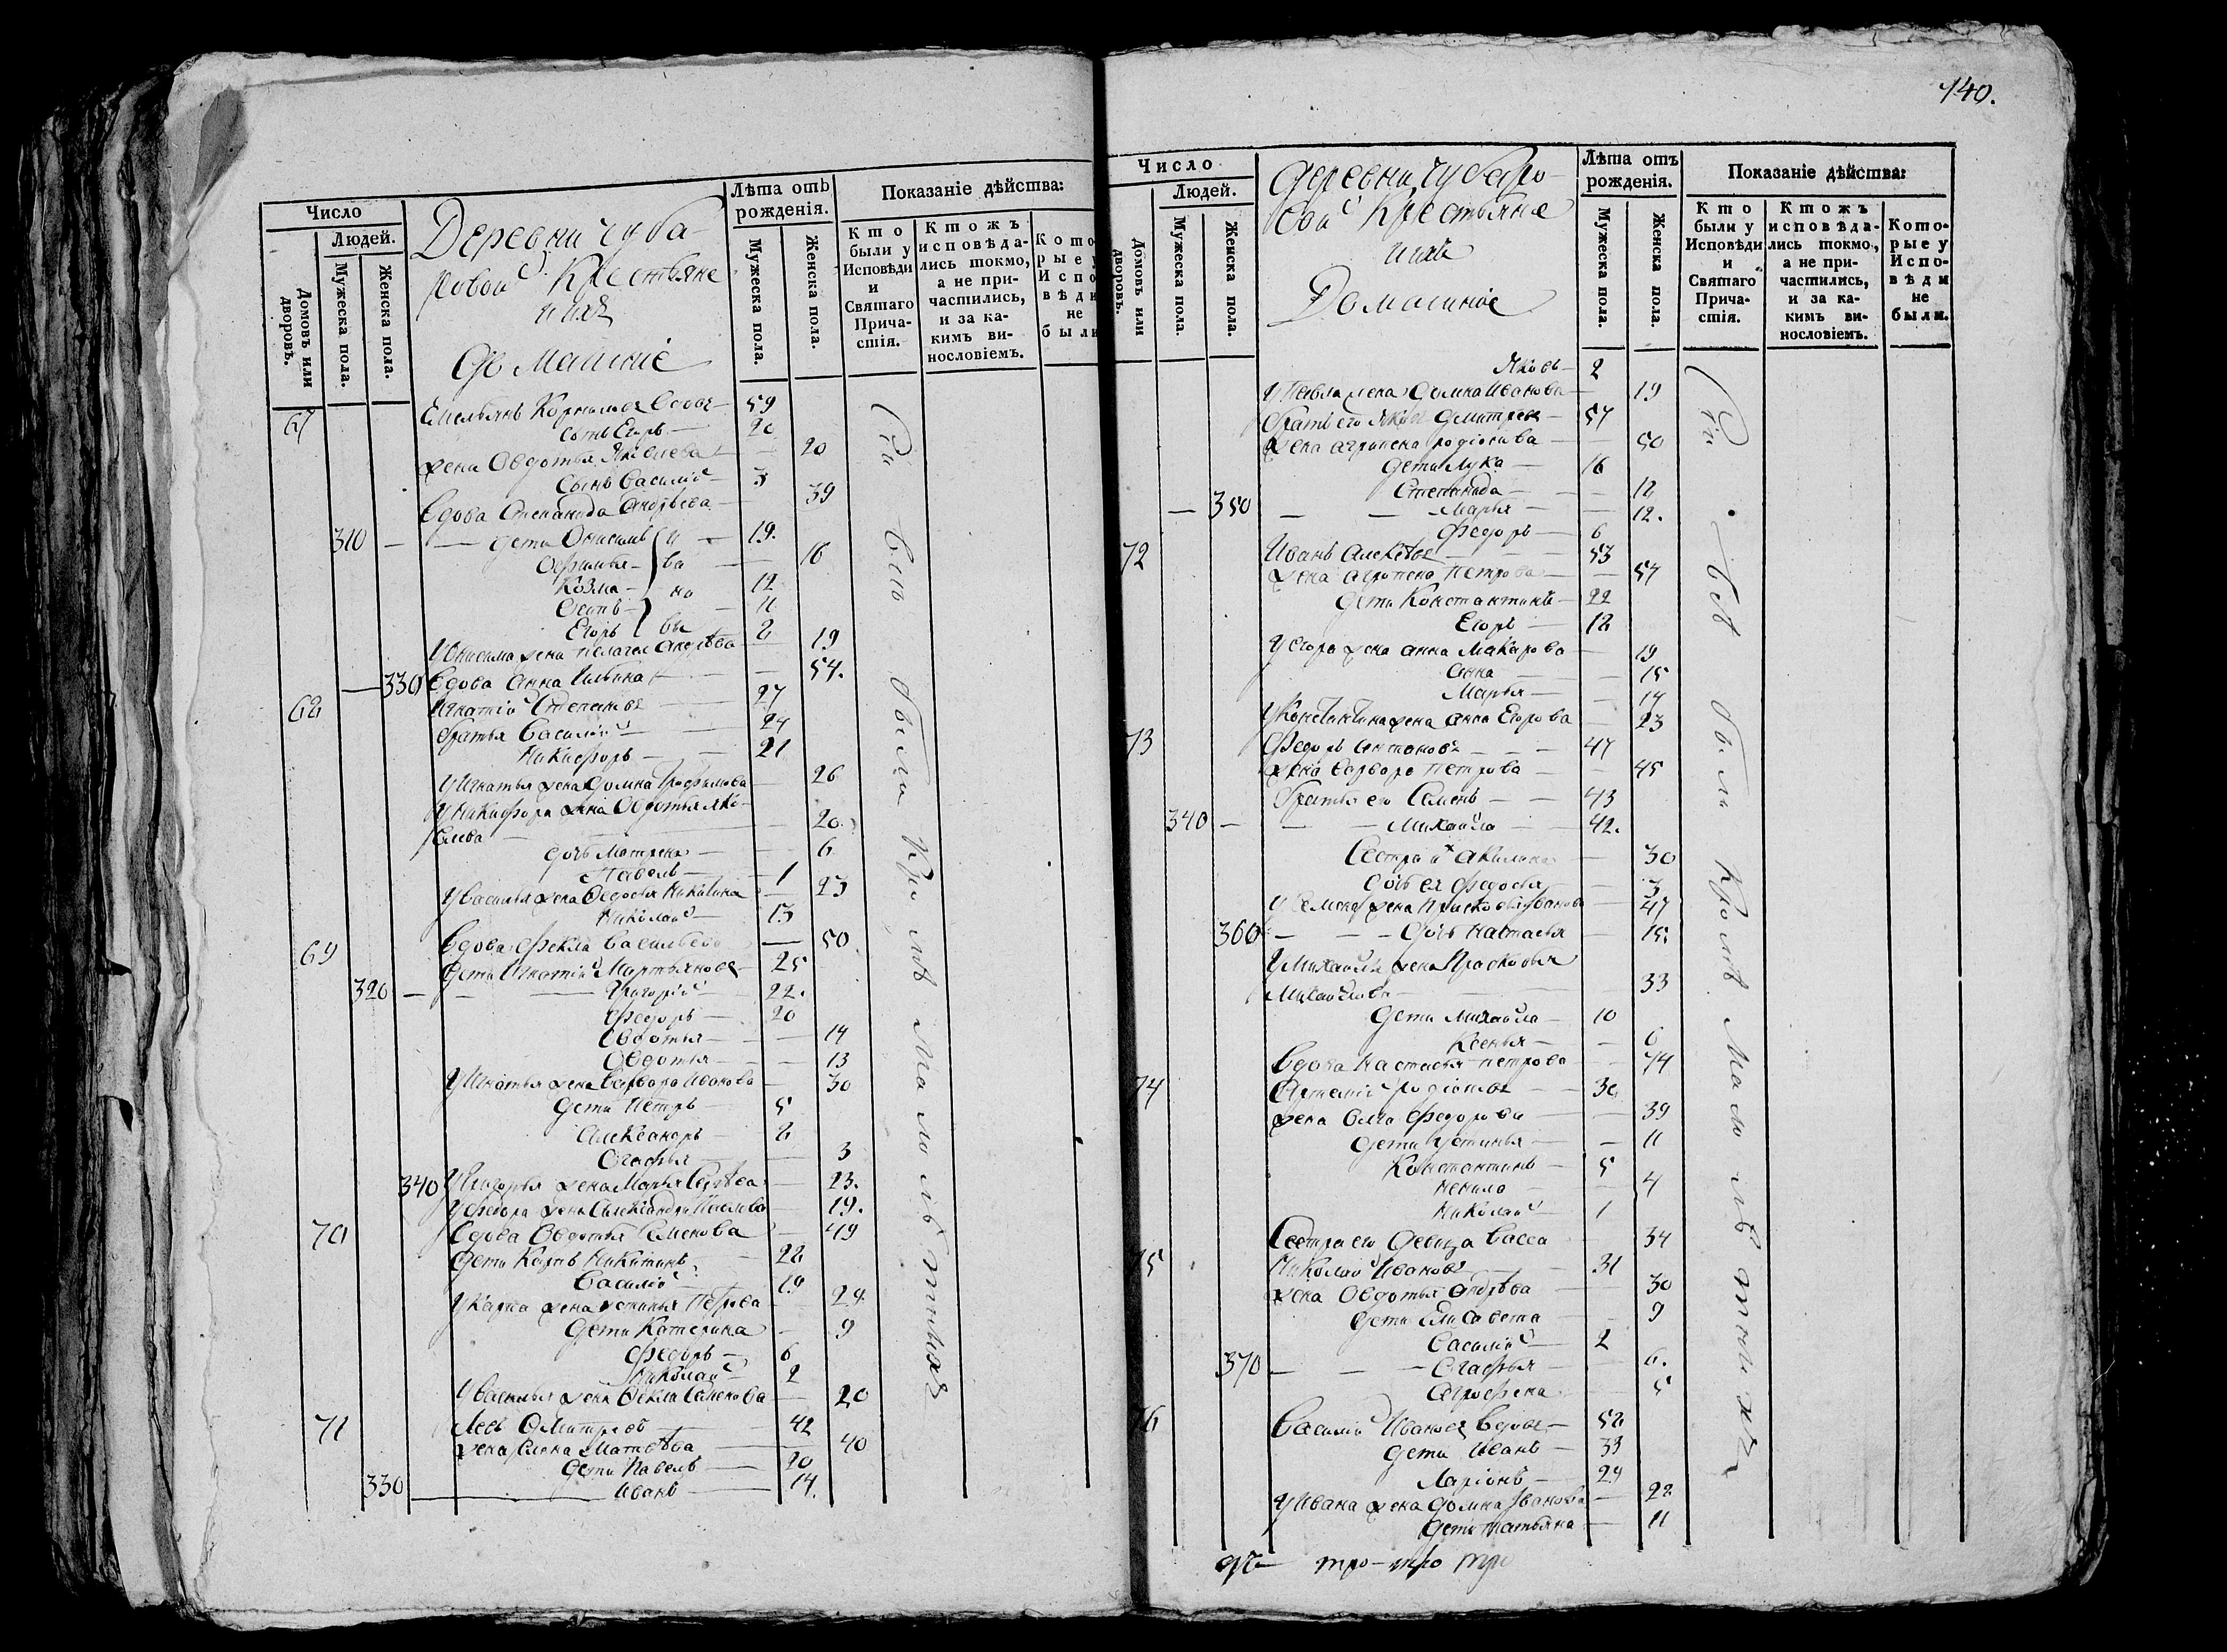 Число
Людей.
Домовъ или дворовъ.
Мужеска пола.
Женска пола.
Деревни Чуба-
ровой Крестьяне
и ихъ
домашніе
Лѣта отъ рожденія.
Мужеска пола.
Женска пола.
Показаніе дѣйства:
Кто были у Исповѣди и Святаго Прича-стія.
Ктожъ исповѣда-лись токмо, а не при-частились, и за ка-кимъ ви-нословіемъ.
Кото рые у Испо вѣди не были
67 Емельянъ Корниловъ вдовъ 59
сынъ Егоръ 20
жена Овдотья Яковлева 20
Сынъ Василій 3
Вдова Степанида Андрѣева 39
310 дети Онисимъ 19.
Офимья 16
Козма 12
Осипъ 11
Егоръ 2
У Онисима жена Пелагея Андрѣева 19
330 Вдова Анна Ильина 54.
68 Игнатій Степановъ 27
братья Василій 24
Никифоръ 21
У Игнатья жена Домна Трофимова 26
У Никифора жена Овдотья Яко-
влева 20.
дочь Матрена 6
Павелъ 1
У Василья жена Федосья Никитина 23
Николай 13
69 Вдова Фекла Васильева 50
Дети Игнатій Мартьяновъ 25
320 Григорій 22.
Федоръ 20
Овдотья 14
Овдотья 13
У Игнатья жена Варвара Иванова 30
Дети Петръ 5
Александръ 2
Огафья 3
340 У Григорья жена Марья Сергѣева 23.
У Федора жена Александра Павлова 19.
70 Вдова Овдотья Семенова 49
Дети Карпъ Никитинъ 22
Василій 19
У Карпа жена Устинья Петрова 24
Дети Катерина 9
Федоръ 6
Николай 2
У Василья жена Фекла Семенова 20
71 Левъ Дмитревъ 42
жена Елена Матвѣева 40
Дети Павелъ 20
330 Иванъ 14.
Сіи всѣ были кромѣ малолѣтнихъ
140.
Число
Людей.
Домовъ или дворовъ.
Мужеска пола.
Женска пола.
Деревни Чубаро-
вой Крестьяне
и ихъ
Домашніе
Лѣта отъ рожденія.
Мужеска пола.
Женска пола.
Показаніе дѣйства:
Кто были у Исповѣди и Святаго Прича-стія.
Ктожъ исповѣда-лись токмо, а не при-частились, и за ка-кимъ ви-нословіемъ.
Кото-рые у Испо-вѣди не были.
Яковъ 2
У Павла жена Домна Иванова 19
Братъ его Яковъ Дмитревъ 57
жена Агрипена Родіонова 50
дети Лука 16
Степанида 12
350 Марья 12.
Федоръ 6
72 Иванъ Алексѣевъ 53
жена Агрипена Петрова 54
дети Константинъ 22
Егоръ 12
У Егора жена Анна Макарова 19
Анна 15
Марья 14
У Константина жена Анна Егорова 23
73 Федоръ Антоновъ 47
жена Варвара Петрова 45
братья его Семенъ 43
340 Михайла 42.
Сестра их Акилина 30
дочь ея Федосья 3
У Семена жена Прасковья Иванова 47
360 дочь Настасья 15.
У Михайлы жена Прасковья
Михайлова 33
Дети Михайла 10
Ксенья 6
Вдова Настасья Петрова 74
74 Артемій Родіоновъ 30
жена Олга Федорова 39
дети Устинья 11
Константинъ 5
Ненила 4
Николай 1
Сестра его девица Васса 34
75 Николай Ивановъ 31
жена Овдотья Андрѣева 30
дети Елисавета 9
Василій 2
370 Огафья 6.
Агрофена 5
76 Василій Ивановъ вдовъ 52
дети Иванъ 33
Ларіонъ 24
У Ивана жена Домна Иванова 22
дети Татьяна 11
Сіи всѣ были кромѣ малолѣтнихъ